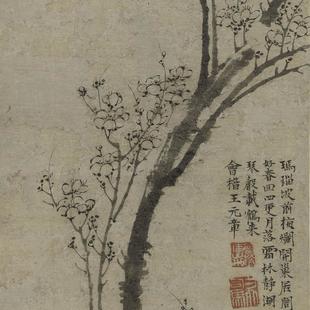 瑪瑙坡前梅爛開巢居閣
好春回四更月落霜林靜湖
琴聲載鶴來
會稽王元章